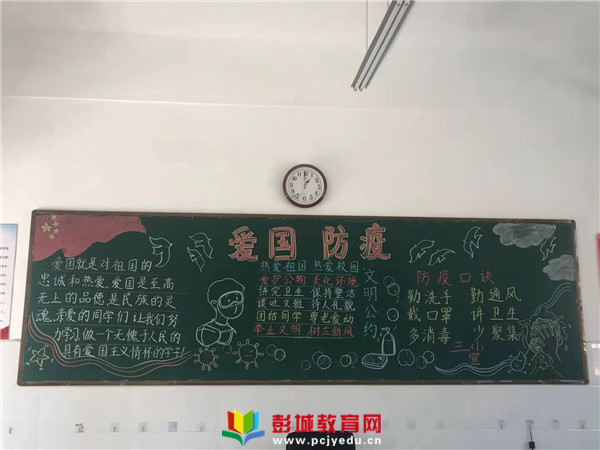 爱国 防疫
爱国就是对祖国的
忠诚和热爱,爱国是至高
无上的品德,是民族的灵
魂,亲爱的同学们让我们努
力学习做一个无愧于人民的
具有爱国主义情怀的学子!
热爱祖国 热爱校园
爱护公物 美化环境
讲究卫生 保持整洁
谈吐文雅 待人礼貌
团结同学 尊老爱幼
举止文明 树立新风
文明公约
防疫口诀
勤洗手 勤通风
戴口罩 讲卫生
多消毒 少聚集
三小宣
彭城教育网
www.pcjyedu.cn